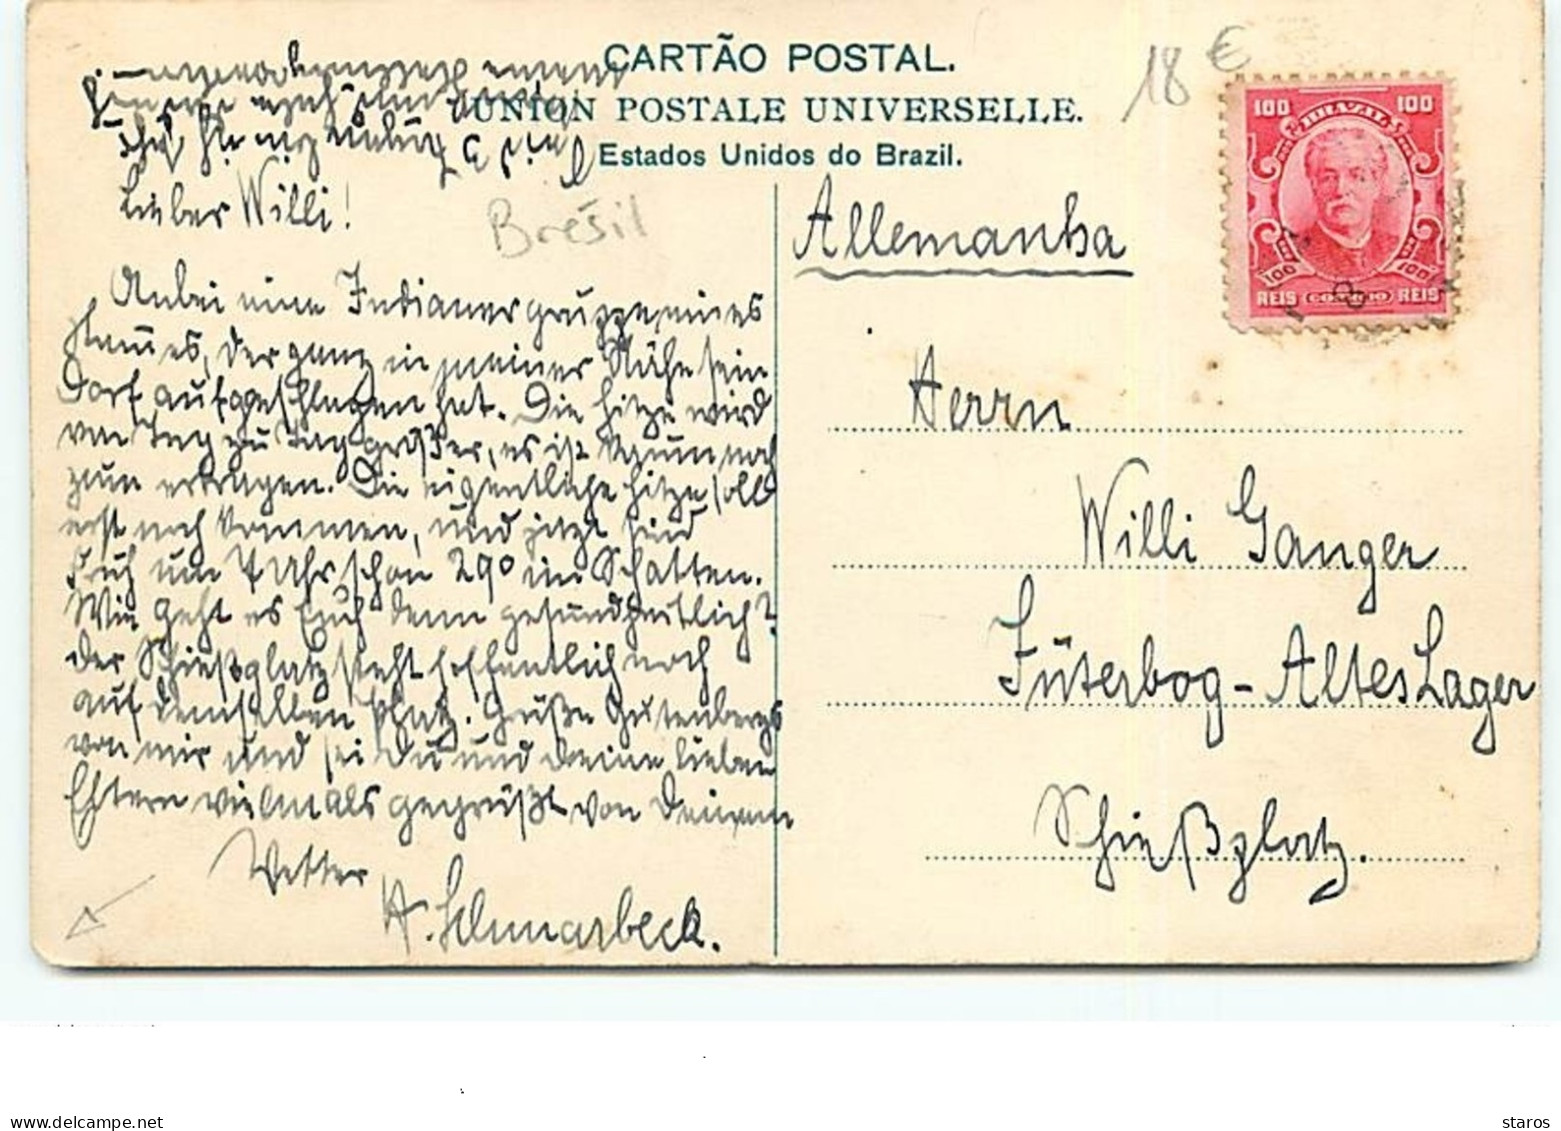 CARTÃO POSTAL.
UNION POSTALE UNIVERSELLE.
Estados Unidos do Brazil.
18 €
100 BRAZIL 100
100 100
REIS CORREIO REIS
Brésil
Lieber Willi!
Anbei eine Indianergruppe, eines
Stammes, der ganz in meiner Nähe sein
Dorf aufgeschlagen hat. Die Hitze wird
von Tag zu Tag größer, es ist kaum noch
zum ertragen. Die eigentliche Hitze soll
erst noch kommen, und jetzt sind
früh um 7 Uhr schon 29° im Schatten.
Wie geht es Euch denn gesundheitlich?
der Schießplatz steht hoffentlich noch
auf demselben Platz. Grüße Gutenbergs
von mir und sei Du und Deine lieben
Eltern vielmals gegrüßt von Deinem
Vetter
Allemanha
Herrn
Willi Ganger
Jüterbog - Altes Lager
Schießplatz.
www.delcampe.net
staros